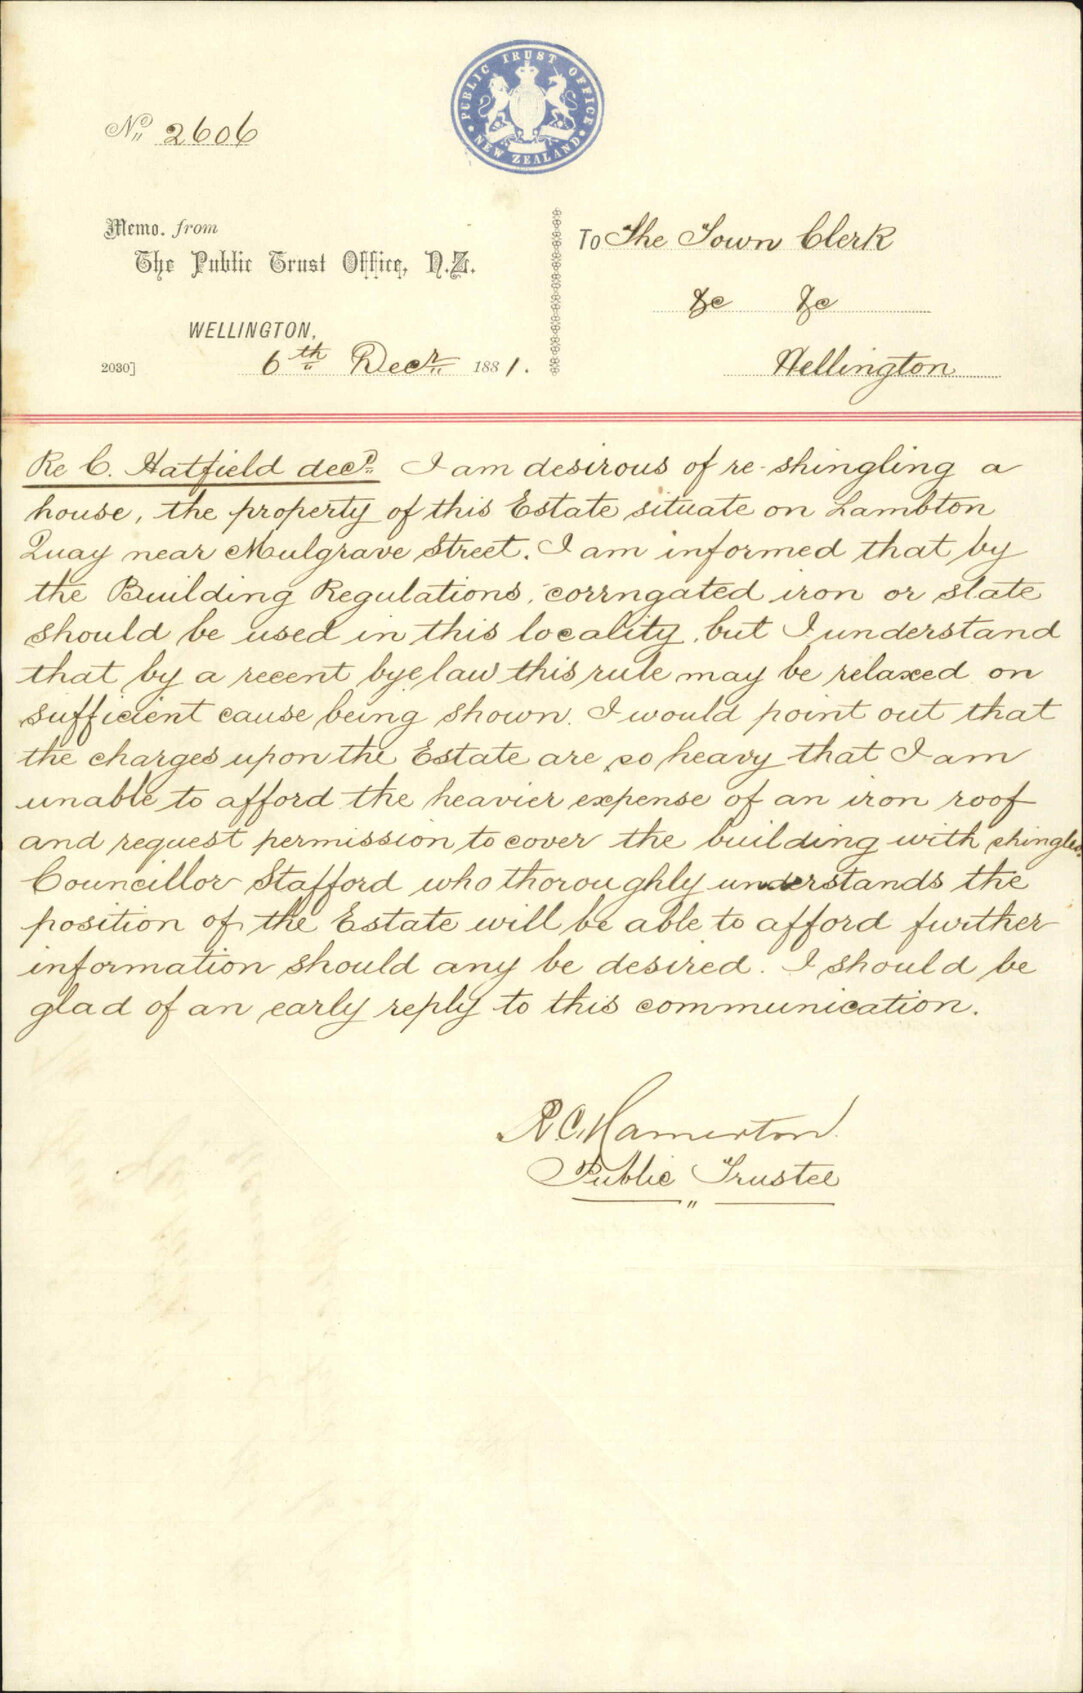 PUBLIC TRUST OFFICE
NEW ZEALAND
No. 2606
Memo. from
The Public Trust Office, N.Z.
WELLINGTON,
6th Decr 1881.
2030]
To The Town Clerk
&c &c
Wellington
Re C. Hatfield decd. I am desirous of re-shingling a
house, the property of this Estate situate on Lambton
Quay near Mulgrave Street. I am informed that by
the Building Regulations, corrngated iron or slate
should be used in this locality, but I understand
that by a recent byelaw this rule may be relaxed on
sufficient cause being shown. I would point out that
the charges upon the Estate are so heavy that I am
unable to afford the heavier expense of an iron roof
and request permission to cover the building with shingles.
Councillor Stafford who thoroughly understands the
position of the Estate will be able to afford further
information should any be desired. I should be
glad of an early reply to this communication.
R C Hamerton
Public Trustee